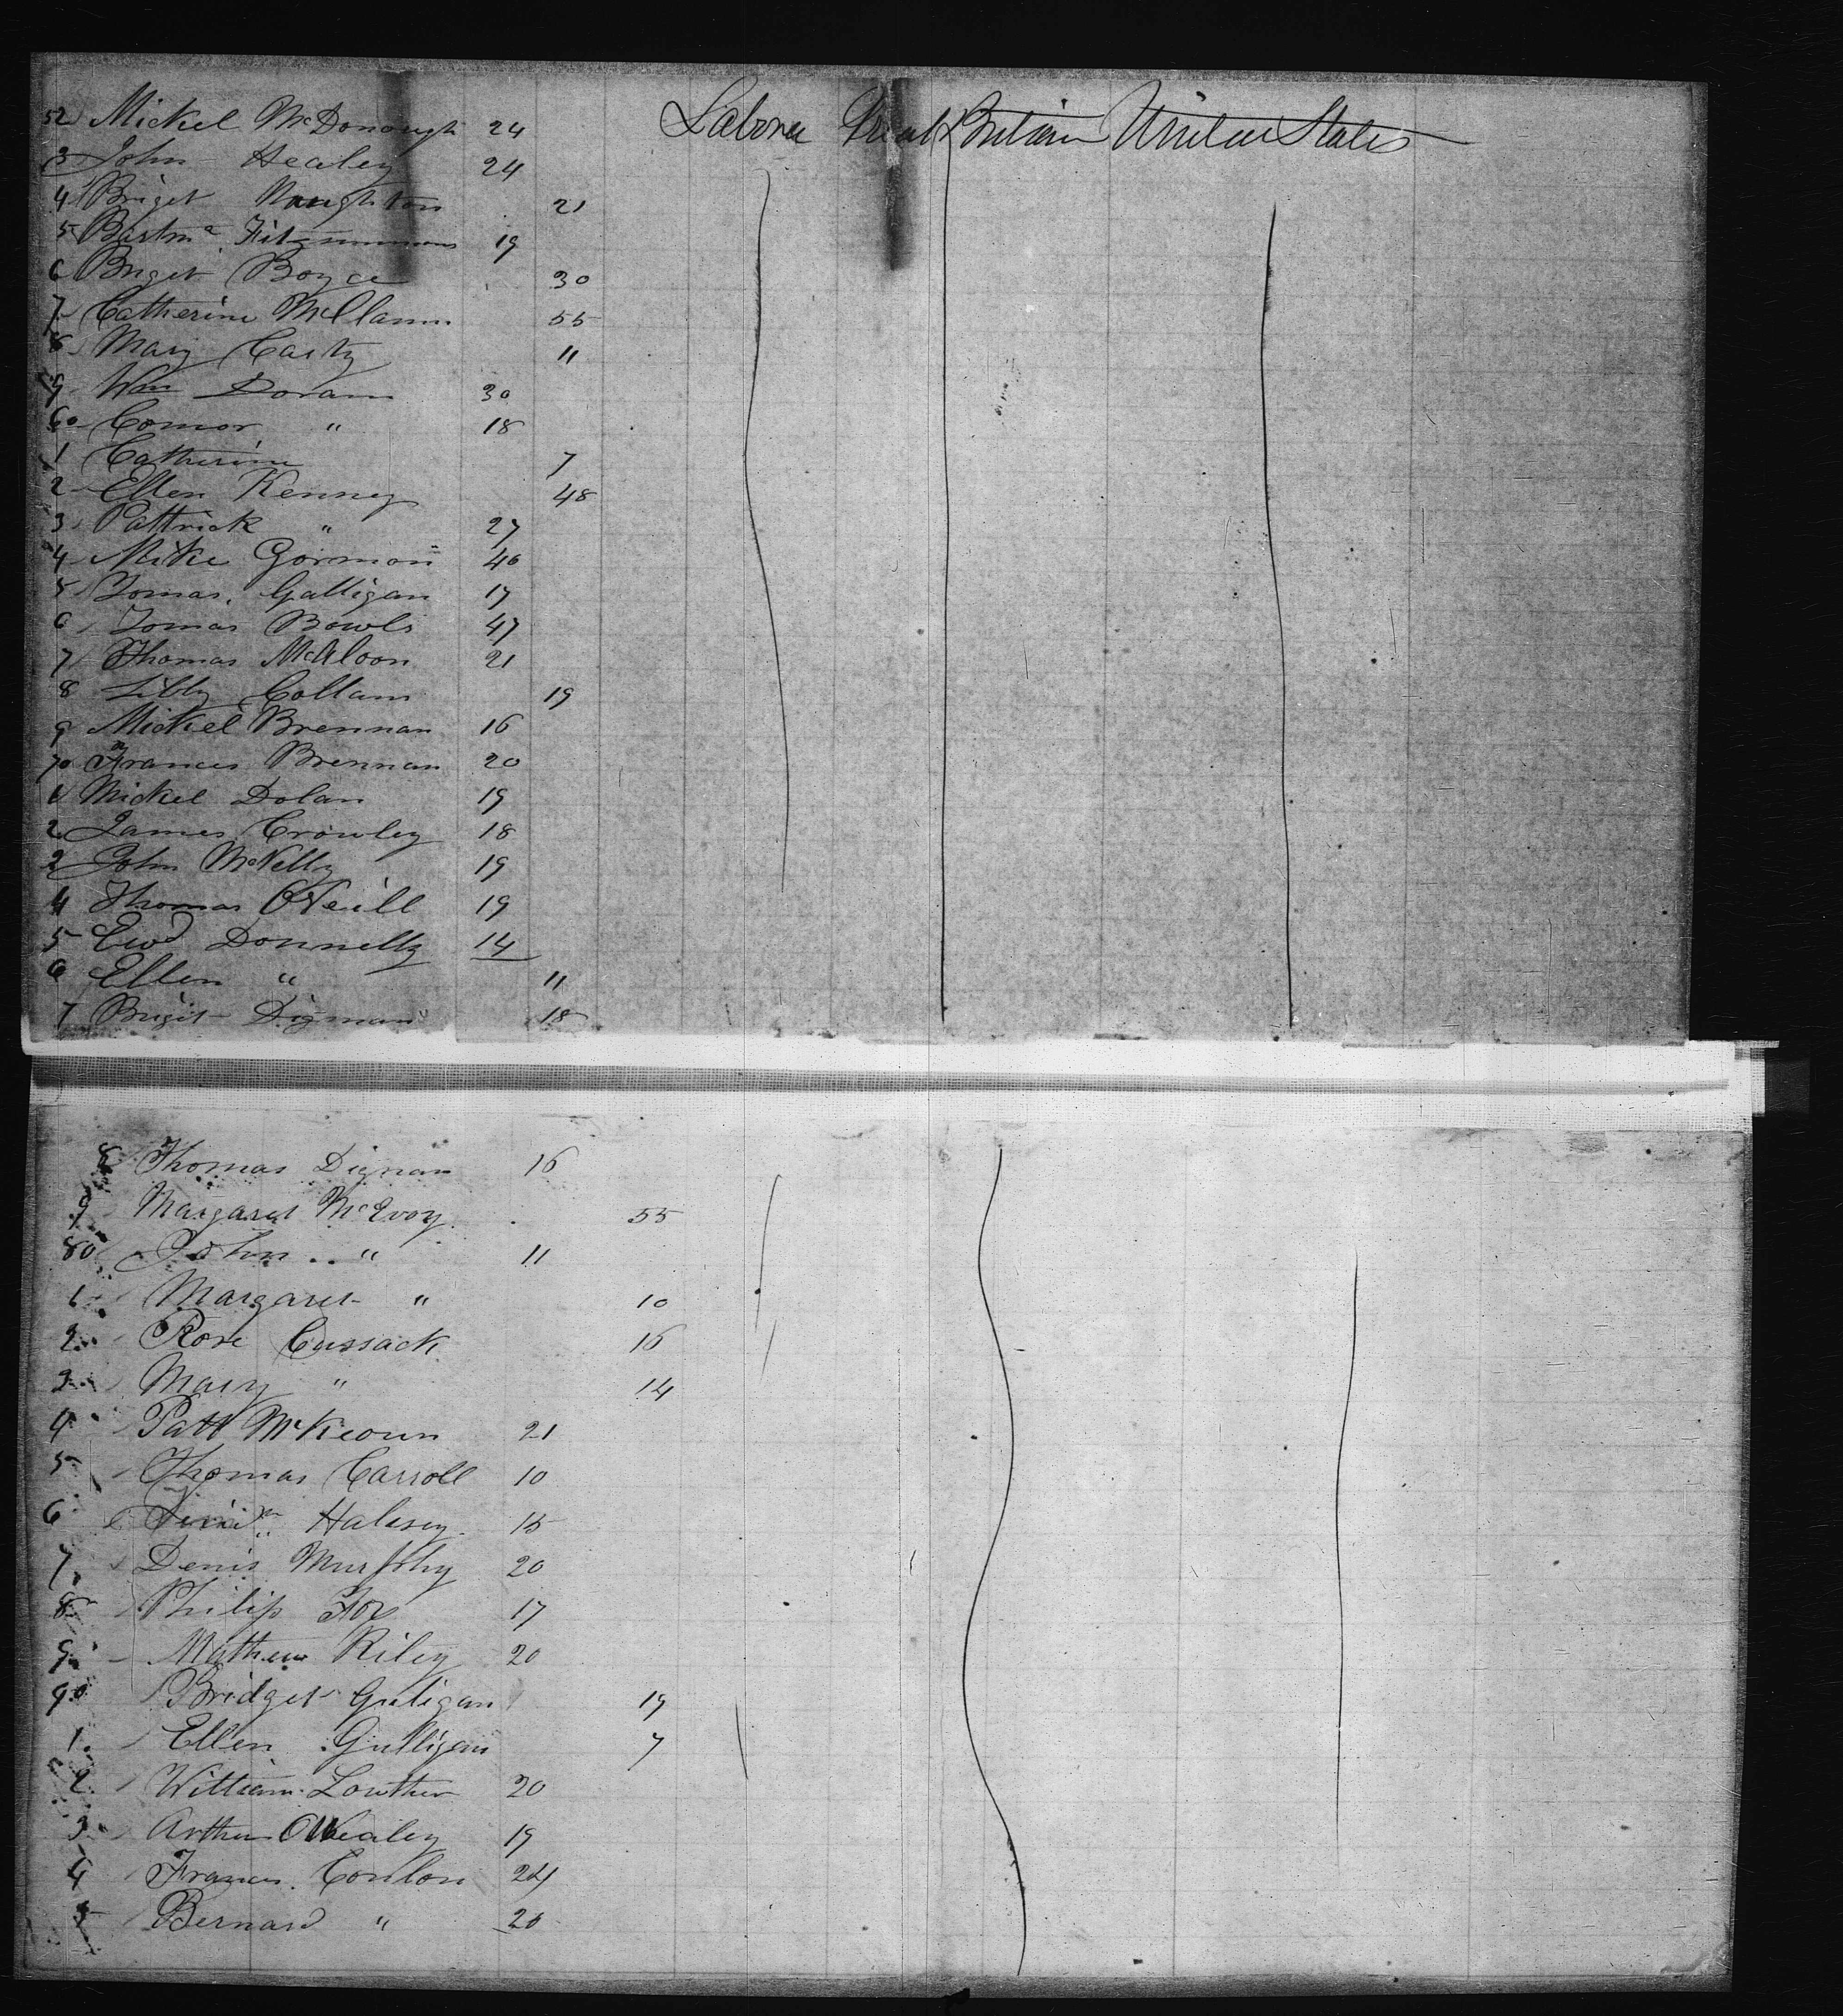 52 Mickel McDonough 24 Laborer Great Britain United States
3 John Healey 24
4 Briget Naughton 21
5 Bartmw Fitzsimmons 19
6 Briget Boyce 30
7 Catherine McClann 55
8 Mary Carty 11
9 Wm Doran 30
60 Connor " 18
1 Catherine 7
2 Ellen Kenney 48
3 Pattrick " 27
4 Mike Gorman 40
5 Tomas Galligan 17
6 Tomas Bowls 47
7 Thomas McAloon 21
8 Libby Collam 19
9 Mickel Brennan 16
70 Frances Brennan 20
1 Mickel Dolan 19
2 James Crowley 18
2 John McNelly 19
4 Thomas ONeill 19
5 Ewd Donnelly 14
6 Ellen " 11
7 Brigit Digman 18
8 Thomas Dignan 16
9 Margaret McEvoy 55
80 John " 11
1 Margaret " 10
2 Rose Cussack 16
3 Mary " 14
4 Patt McKeown 21
5 Thomas Carroll 10
6 Halesey 15
7 Denis Murphy 20
8 Philip Fox 17
9 Mathew Riley 20
90 Bridget Guligan 19
1 Ellen Gulligan 7
2 William Lowther 20
3 Arthur 19
4 Frances Conlon 24
5 Bernard " 20